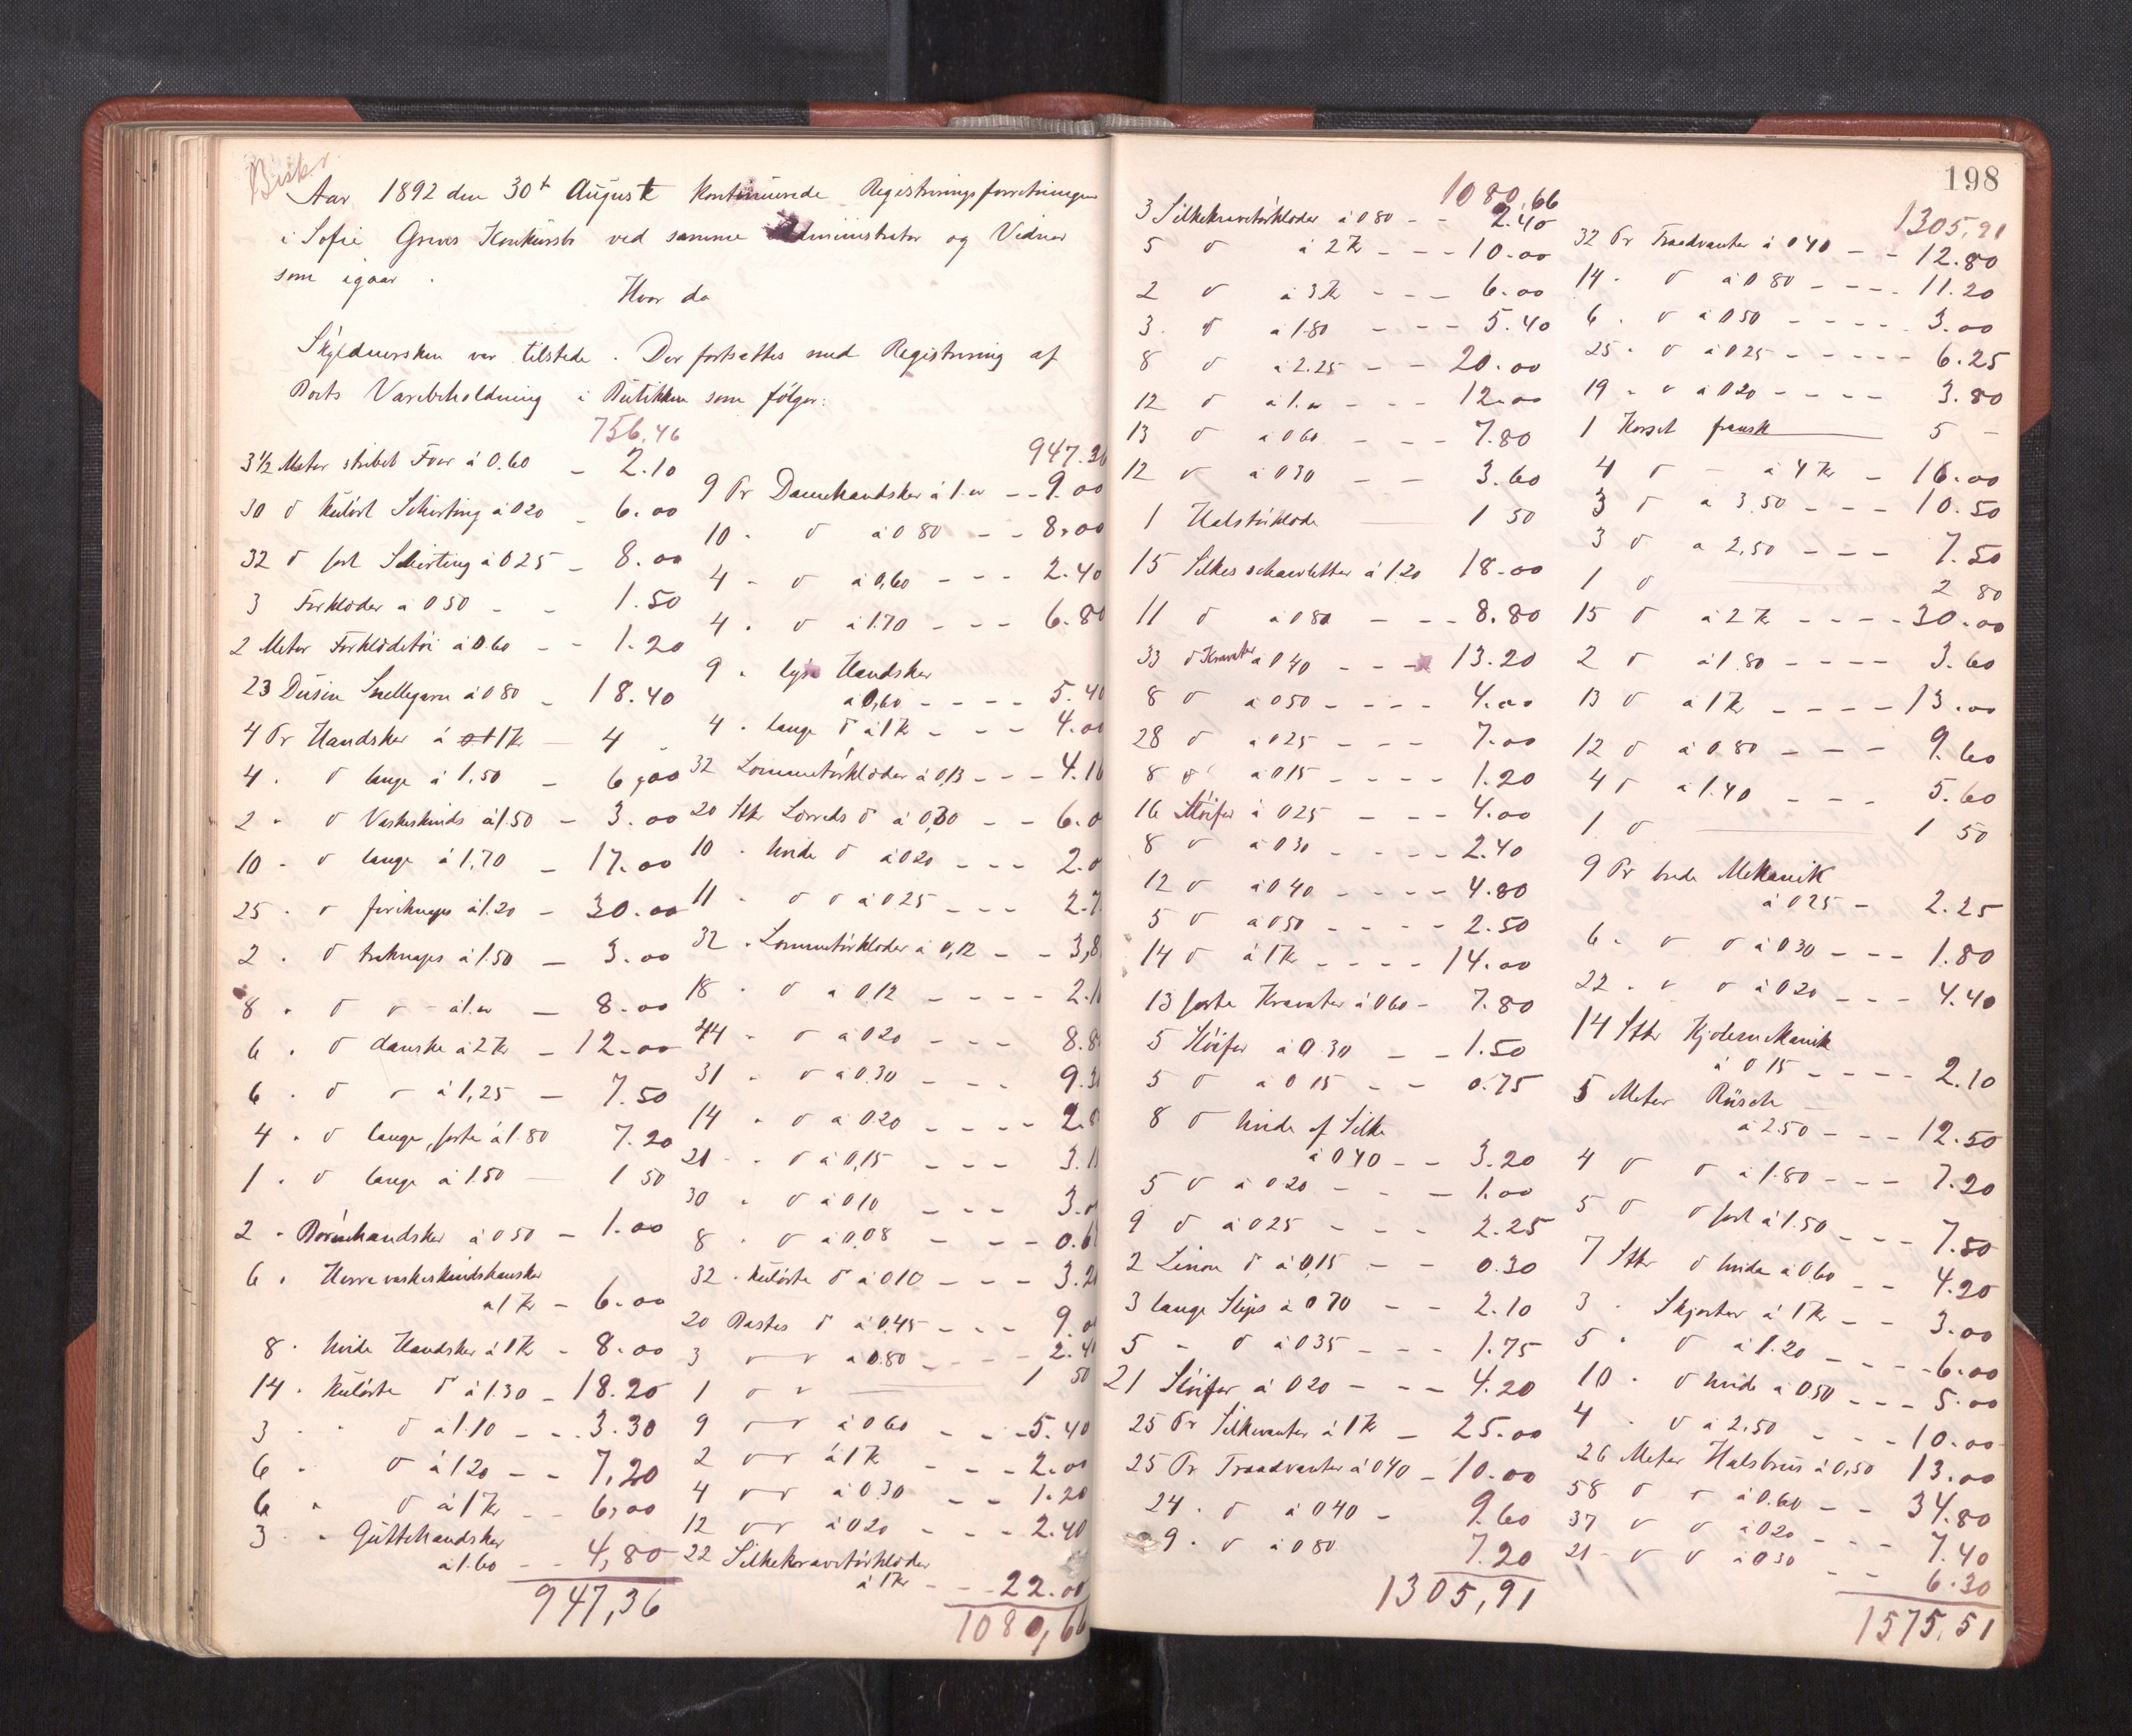 Aar 1892 den 30t August kontinuerede Registreringsforretningen
i Sofie Greves Konkursbo ved samme Administrator og Vidner
som igaar.
Hvor da
Skyldnersken var tilstede. Der fortsattes med Registrering af
Boets Varebeholdning i Butikken som følger:
756,46
3½ Meter stribet Foer á 0.60 – 2.10
30 d kulört Schirting á 020 – 6.00
32 d sort Schirting á 025 – 8.00
3 Forklæder á 050 – – 1.50
2 Meter Forklædetöi á 0.60 – – 1.20
23 Dusin Snellegarn á 080 – 18.40
4 Pr Handsker á 1 Kr – 4 –
4 . d lange á 1,50 – 6,00
2 " d Vaskeskinds á 1.50 – 3.00
10 – d lange á 1,70 – 17.00
25 . d fireknaps á 1.20 – 30.00
2 . d treknaps á 1.50 – 3.00
8 . d d – á 1.00 – 8.00
6 . d danske á 2 Kr – 12.00
6 . d d á 1,25 – 7.50
4 . d lange, sorte á 1.80 7.20
1 . d lange á 1.50 – 1 50
2 . Börnehandsker á 050 – 1.00
6 . Herrevaskeskindshansker
á 1 Kr – 6.00
8 . hvide Handsker á 1 Kr – 8.00
14 . kulörte d á 1.30 – 18.20
3 . . d á 1.10 – – 3.30
6 . d á 1.20 – – 7,20
6 " d á 1 Kr – – 6,00
3 . " Guttehandsker
á 1.60 – – 4,80
947,36
947.36
9 Pr Damehandsker á 1.00 – – 9.00
10 . d á 080 – – 8.00
4 – d á 0,60 – – – 2.40
4 . d á 1.70 – – – 6.80
9 " lyse Handsker
á 0,60 – – – – 5.40
4 . lange d á 1 K – – – 4.00
32 Lommetörklæder á 0,13 – – – 4.16
20 Stkr Lerreds d á 0,30 – – 6.0
10 . hvide d á 020 – – – 2.0
11 – d d á 025 – – – 2.7
32 . Lommetörklæder á 0,12 – – 3,8
18 . d á 0.12 – – – – 2.1
44 – d á 020 – – – 8.8
31 . d á 0.30 – – – 9.3
14 " d á 020 – – – – 2.8
21 . d á 0,15 – – – 3.1
30 " d á 010 – – – 3.0
8 . d á 0.08 – – – 0.6
32 . kulörte d á 010 – – – 3.2
20 Bastes d á 0.45 – – – 9.0
3 d d á 0.80 – – – – 2.4
1 d d 1 50
9 d d á 060 – – – 5.40
2 d d á 1 K – – – 2.00
4 d d á 0.30 – – 1.20
12 d d á 020 – – – 2.40
22 Silkekravetörklæder
á 1 Kr – – 22.00
1080,66
198
1080,66
3 Silkekravetörklæder á 080 – – 2.40
5 d á 2 Kr – – – 10.00
2 d á 3 Kr – – – 6.00
3 . d á 1.80 – – – – 5.40
8 d á 2.25 – – 20.00
12 d á 1.00 – – – 12.00
13 d á 060 – – – 7.80
12 d á 030 – – 3.60
1 Halstörklæde 1 50
15 Silkes á 1.20 18.00
11 d á 080 – – – 8.80
33 d Kravater á 040 – – – 13.20
8 d á 050 – – – – 4.00
28 d á 025 – – – 7.00
8 d á 015 – – – – 1.20
16 Slöifer á 025 – – – 4.00
8 d á 030 – – – – 2.40
12 d á 040 – – – – 4.80
5 d á 050 – – – – 2.50
14 d á 1 K – – – – 14.00
13 sorte Kravater á 060 – 7.80
5 Slöifer á 0.30 – – 1.50
5 d á 015 – – 0.75
8 d hvide af Silke
á 040 – – 3.20
5 d á 020 – – – 1.00
9 d á 025 – – – 2.25
2 Linon d á 0,15 – – 0.30
3 lange Slips á 070 – – 2.10
5 – d á 035 – – – 1.75
21 Slöifer á 020 – – – 4.20
25 Pr Silkevanter á 1 K – 25.00
25 Pr Traadvanter á 040 – 10.00
24 . d á 040 – 9.60
9 . d á 080 7.20
1305,91
1305,91
32 Pr Traadvanter á 040 – – 12.80
14 . d á 080 – – – – 11.20
6 . d á 050 – – – – 3.00
25 . d á 025 – – – – – 6.25
19 – d á 020 – – – – 3.80
1 Korset fransk 5 –
4 d – á 4 Kr – 16.00
3 d á 3,50 – – – 10.50
3 d á 2,50 – – – 7.50
1 d 2 80
15 d á 2 K – – – – 30.00
2 d á 1.80 – – – – 3.60
13 d á 1 K – – – – 13.00
12 d á 0.80 – – – 9.60
4 d á 1.40 – – – 5.60
1 d 1 50
9 Pr brede Mekanik
á 025 – 2.25
6 . d d á 030 – – – 1.80
22 . d d á 020 – – – 4.40
14 Stkr Kjolemekanik
á 015 – – – – 2.10
5 Meter Rüsche
á 2.50 – – – 12.50
4 d d á 1.80 – – – 7.20
5 d d sort á 1.50 – – – 7.50
7 Stkr d hvide á 0.60 – – 4.20
3 . Skjorter á 1 Kr – – 3.00
5 . d á 1.20 – – – – 6.00
10 . d hvide á 0.50 – – – 5.00
4 . d á 2,50 – – – 10.00
26 Meter Halsbrus á 0,50 13.00
58 d d á 0.60 – – 34.80
37 d d á 020 – – – 7.40
21 – d d á 030 – – 6.30
1575,51